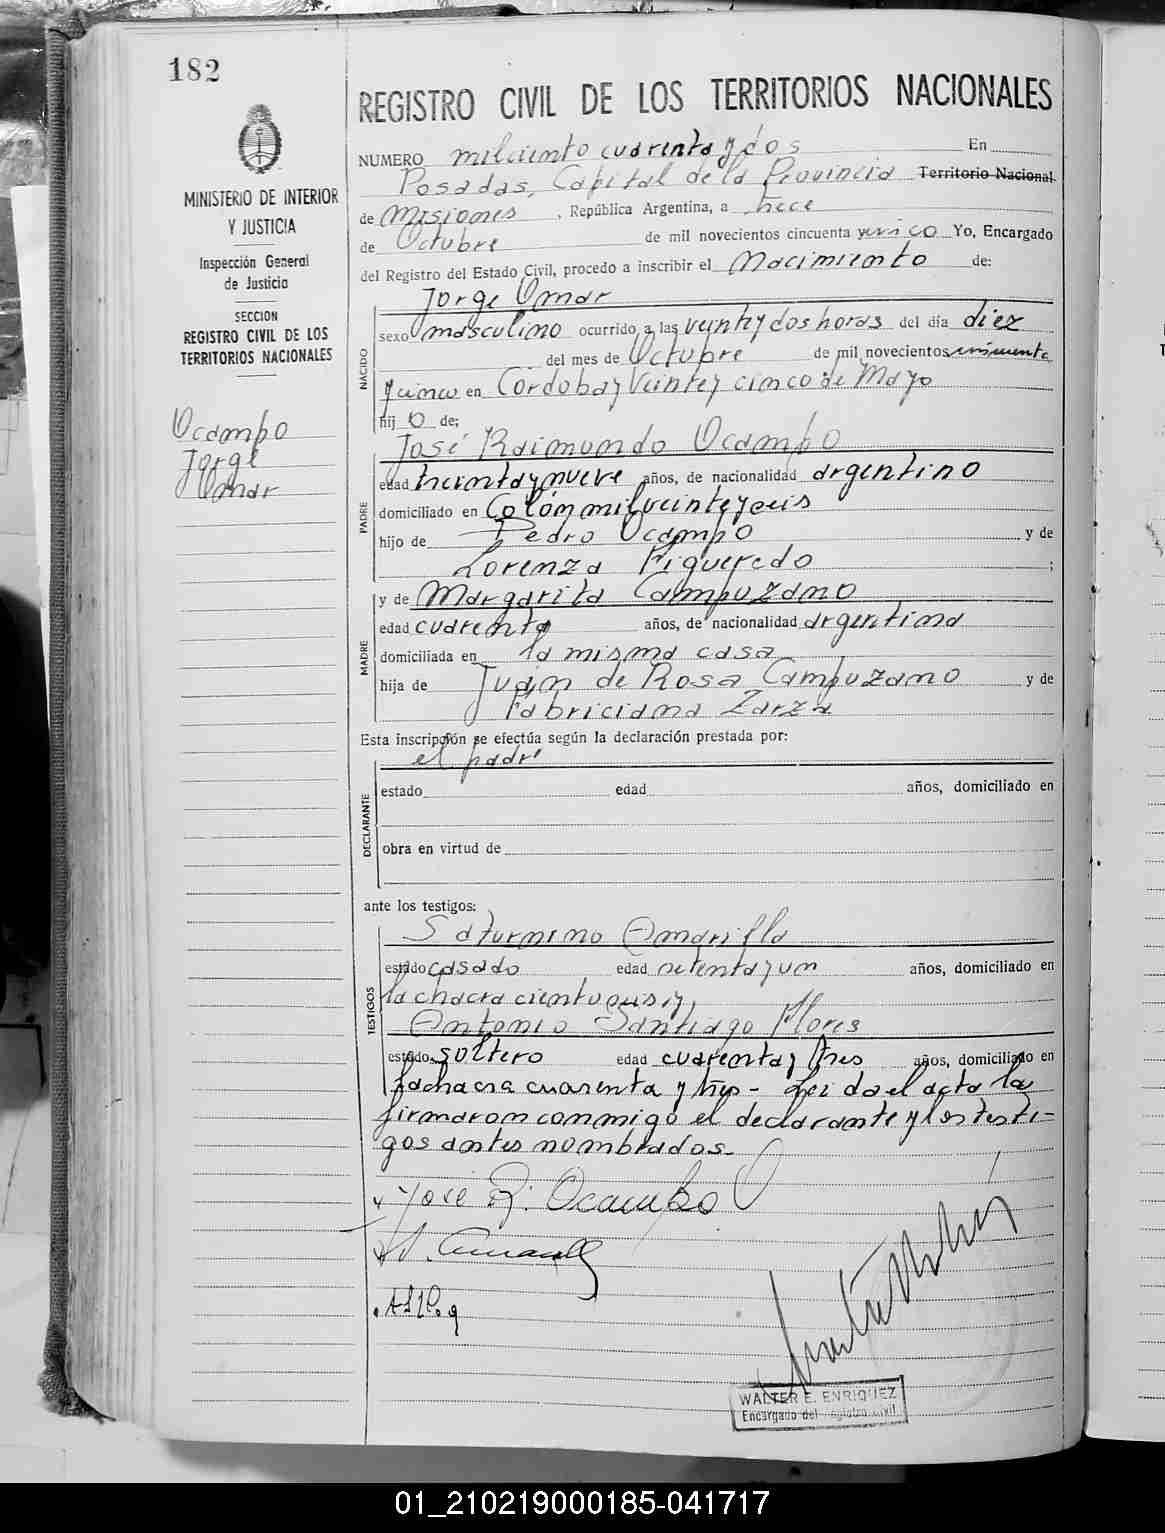 182
REGISTRO CIVIL DE LOS TERRITORIOS NACIONALES
MINISTERIO DE INTERIOR
Y JUSTICIA
Inspección General
de Justicia
SECCION
REGISTRO CIVIL DE LOS
TERRITORIOS NACIONALES
Ocampo
Jorge
Omar
NUMERO mil ciento cuarenta y dos En
Posadas, Capital de la Provincia Territorio Nacional
de Misiones, República Argentina, a trece
de Octubre de mil novecientos cincuenta y cinco Yo, Encargado
del Registro del Estado Civil, procedo a inscribir el Nacimiento de:
NACIDO
Jorge Omar
sexo masculino ocurrido a las veinty dos horas del día diez
del mes de Octubre de mil novecientos cincuenta
y cinco en Córdoba y Veinte y cinco de Mayo
hij o de;
PADRE
José Raimundo Ocampo
edad treinta y nueve años, de nacionalidad argentino
domiciliado en Colón mil veinte y seis
hijo de Pedro Ocampo y de
Lorenza Figueredo ;
MADRE
y de Margarita Campuzano
edad cuarenta años, de nacionalidad argentina
domiciliada en la misma casa
hija de Juan de Rosa Campuzano y de
Fabriciana Zarza
Esta inscripción se efectúa según la declaración prestada por:
el padre
DECLARANTE
estado edad años, domiciliado en
obra en virtud de
ante los testigos:
TESTIGOS
Saturnino Amarilla
estado casado edad setenta y un años, domiciliado en
la chacra ciento seis y
Antonio Santiago Flores
estado soltero edad cuarenta y tres años, domiciliado en
la chacra cuarenta y tres - Leida el acta la
firmaron conmigo el declarante y los testi-
gos antes nombrados.
José R. Ocampo
WALTER E. ENRIQUEZ
Encargado del Registro Civil
01_210219000185-041717